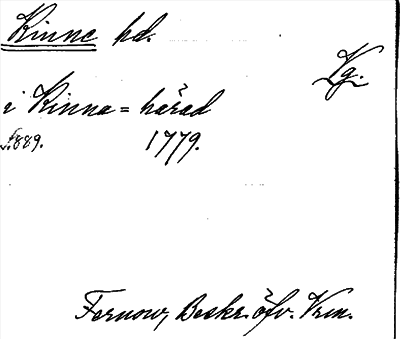 Kinne hd.
Vg.
i Kinna=härad
s. 889. 1779.
Fernow, Beskr. öfv. Vrm.